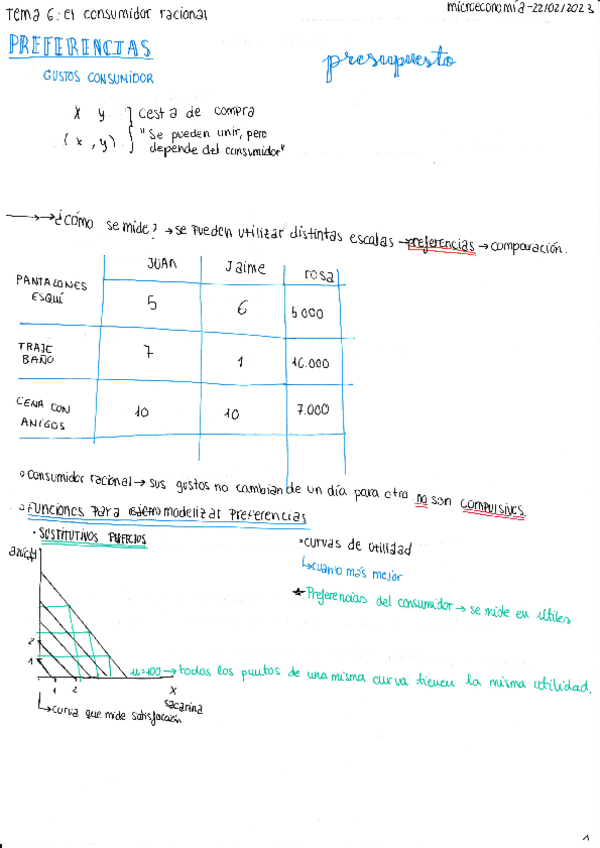 Tema 6: el consumidor racional
microeconomía-22/02/2023
PREFERENCIAS
presupuesto
GUSTOS CONSUMIDOR
x y } cesta de compra
(x, y) "Se pueden unir, pero
depende del consumidor"
→→¿cómo se mide? → se pueden utilizar distintas escalas → preferencias → comparación.
JUAN Jaime rosa
PANTALONES ESQUÍ 5 6 5000
TRAJE BAÑO 7 1 16.000
CENA CON AMIGOS 10 10 7.000
consumidor racional → sus gustos no cambian de un día para otro no son compulsivos.
FUNCIONES Para modelizar Preferencias
• SUSTITUTIVOS PERFECTOS
•curvas de utilidad
↳cuanto más mejor
★ Preferencias del consumidor → se mide en útiles
2
1
u=100 → todos los puntos de una misma curva tienen la misma utilidad.
1 2 x
sacarina
↳curva que mide satisfacción
1